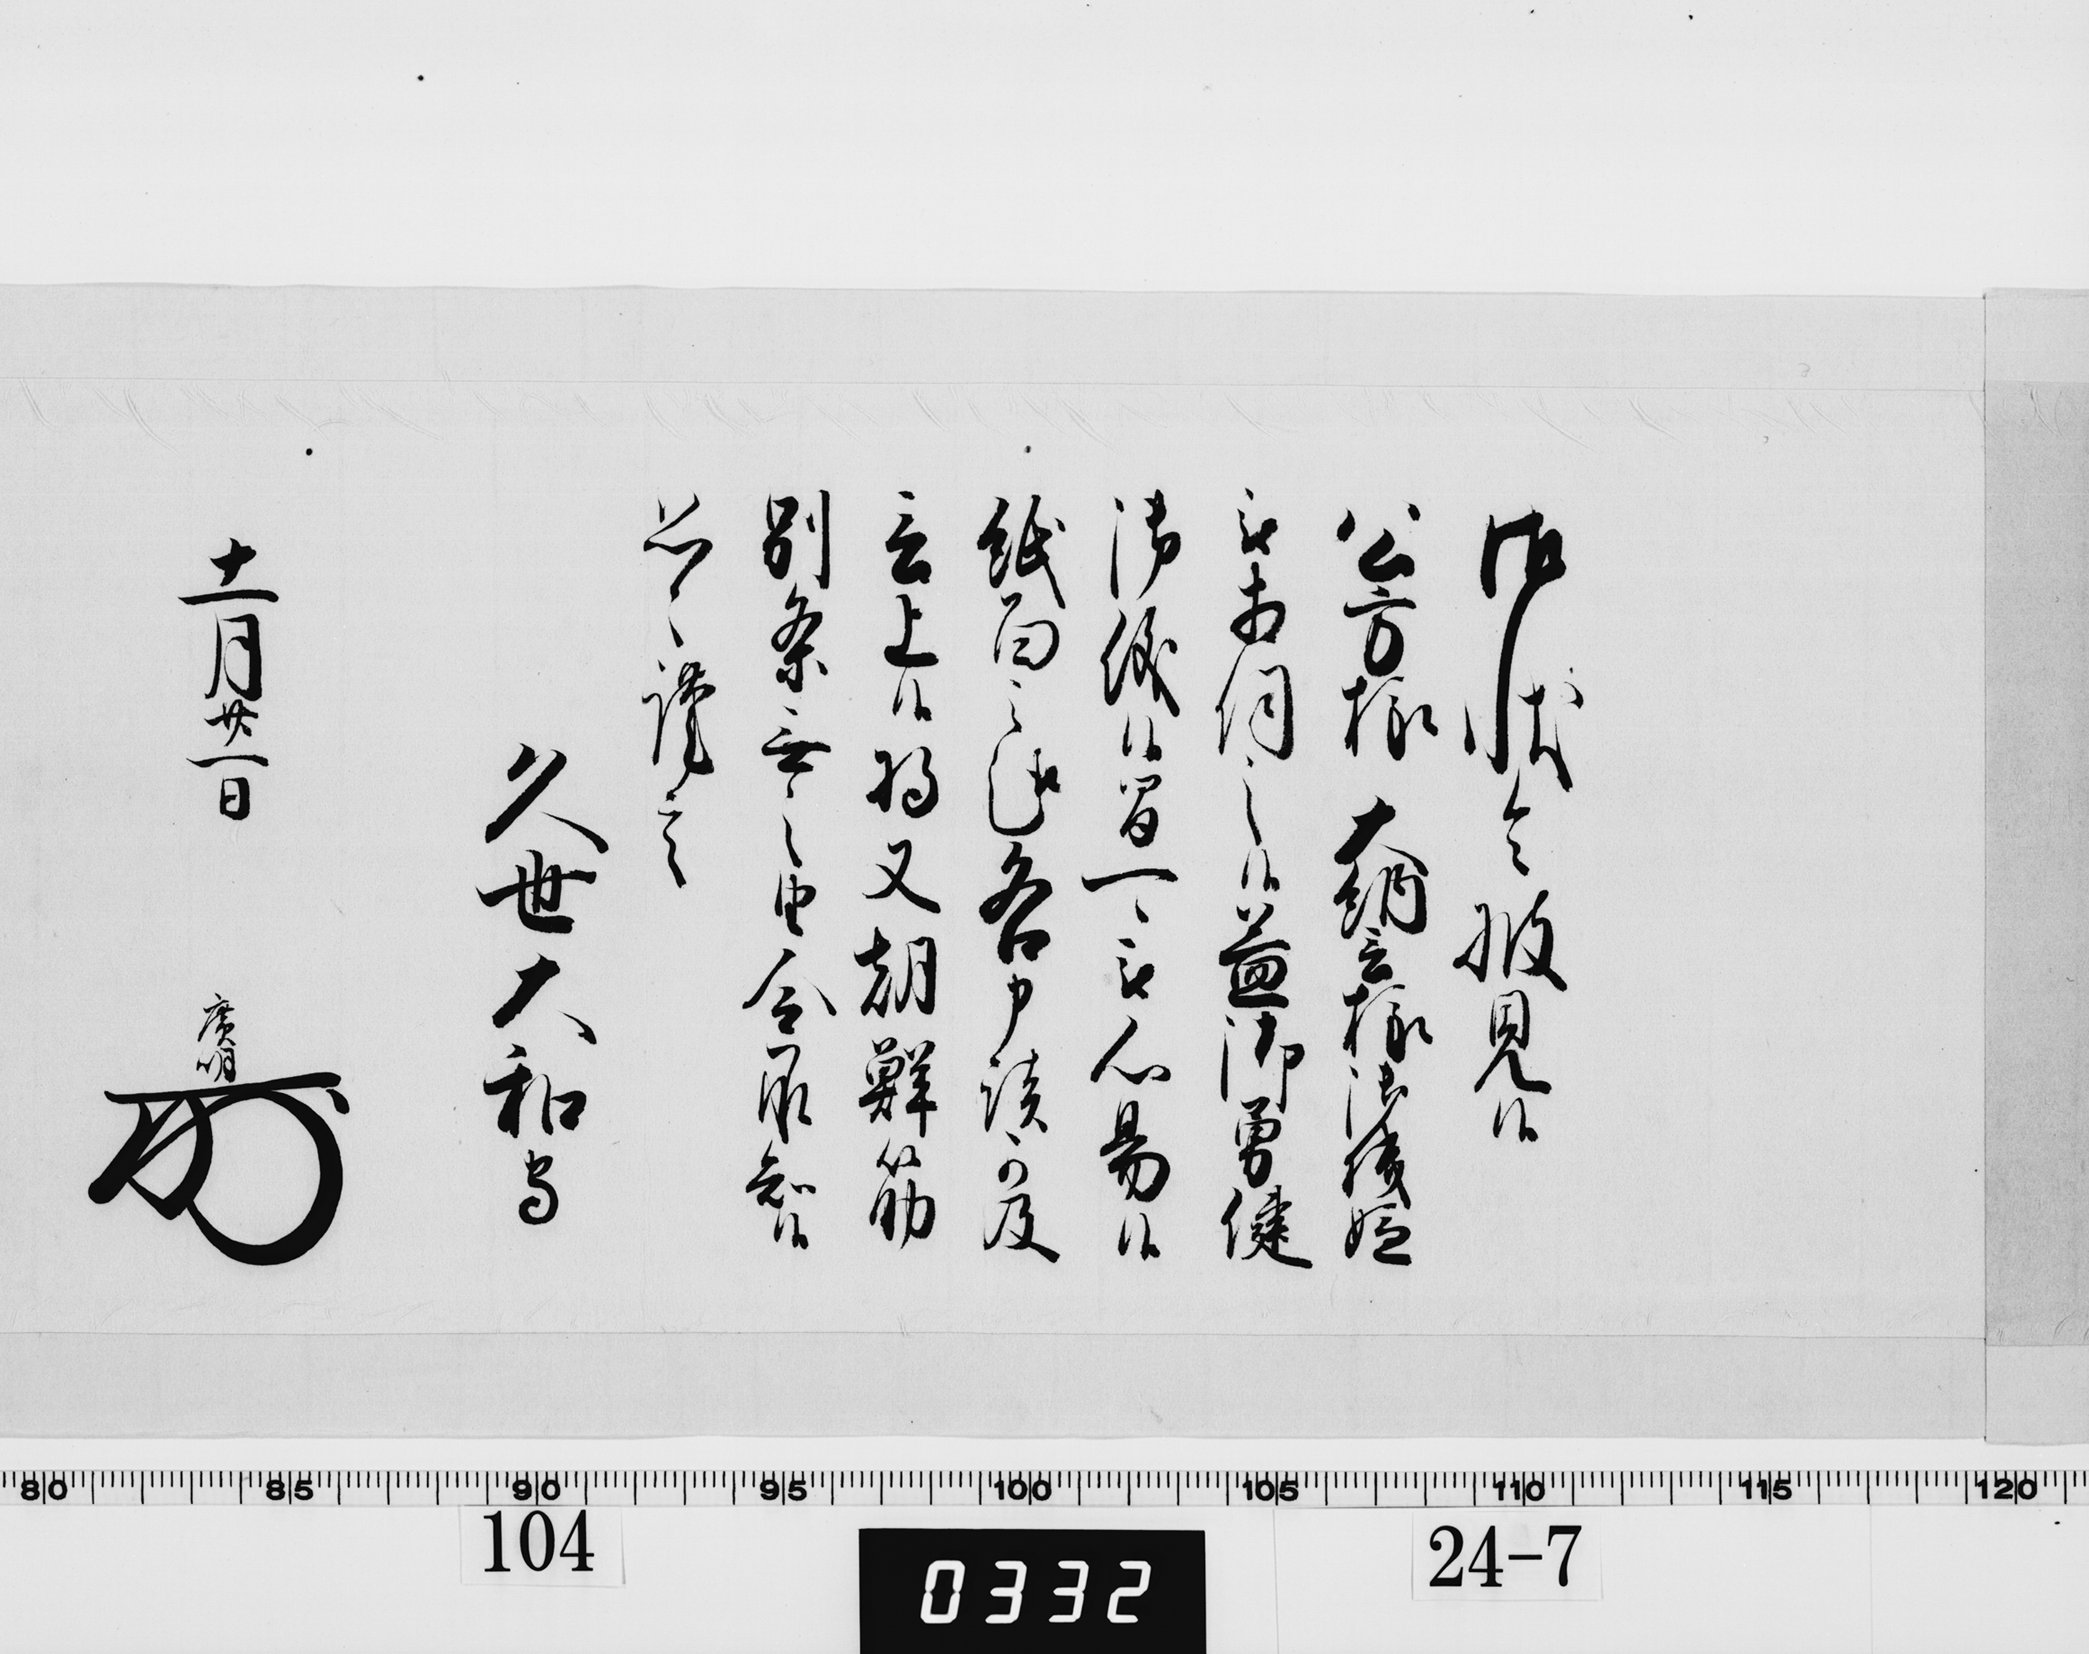 御状令披見候
公方様 大納言様御機嫌
被相伺之候益御勇健
御儀候間可被心易候
紙面之趣各申談可及
言上候将又朝鮮筋
別条無之由令承知候
恐々謹言
久世大和守
十一月廿一日 廣明
80 85 90 95 100 105 110 115 120
104
0332
24-7